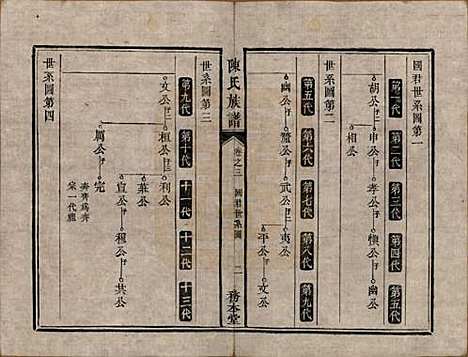 國君世系圖第一
第一代 第二代 第三代 第四代 第五代
胡公 申公 孝公 慎公 幽公
相公
世系圖第二
第五代 第六代 第七代 第八代 第九代
幽公 釐公 武公 夷公
平公 文公
陳氏族譜
卷之三 國君世系圖 二
務本堂
世系圖第三
第九代 第十代 十一代 十二代 十三代
文公 桓公 利公
莊公
宣公 穆公 共公
厲公 完
奔齊爲齊
世系圖第四